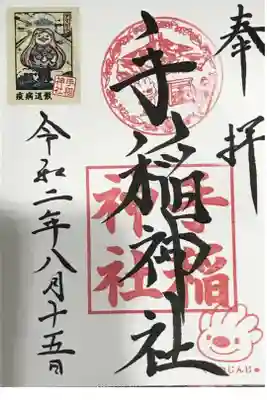 奉拝
手稲神社
手稲
神社
令和二年八月十五日
手稲
神社
疫病退散
じんじゃ